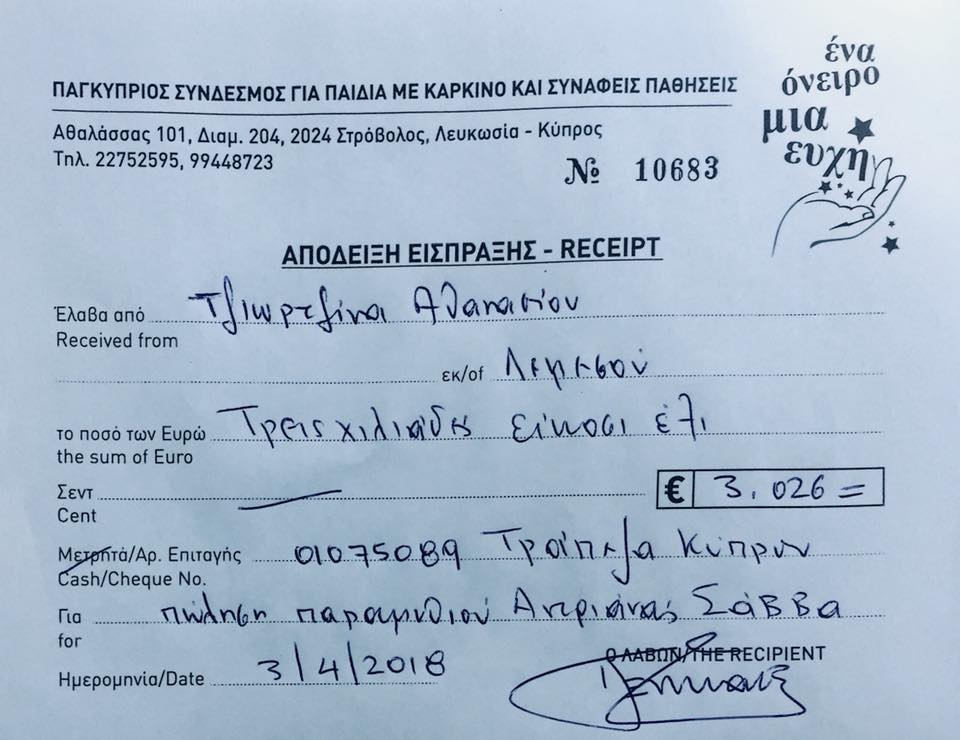 ένα
όνειρο
μια
ευχη
ΠΑΓΚΥΠΡΙΟΣ ΣΥΝΔΕΣΜΟΣ ΓΙΑ ΠΑΙΔΙΑ ΜΕ ΚΑΡΚΙΝΟ ΚΑΙ ΣΥΝΑΦΕΙΣ ΠΑΘΗΣΕΙΣ
Αθαλάσσας 101, Διαμ. 204, 2024 Στρόβολος, Λευκωσία - Κύπρος
Τηλ. 22752595, 99448723
№ 10683
ΑΠΟΔΕΙΞΗ ΕΙΣΠΡΑΞΗΣ - RECEIPT
Έλαβα από Τζιωρτζίνα Αθανασίου
Received from
εκ/of Λεμεσού
το ποσό των Ευρώ Τρεις χιλιάδες είκοσι έξι
the sum of Euro
Σεντ
Cent
€ 3.026 =
Μετρητά/Αρ. Επιταγής 01075089 Τράπεζα Κύπρου
Cash/Cheque No.
Για πώληση παραμυθιού Αντριάνας Σάββα
for
Ο ΛΑΒΩΝ/THE RECIPIENT
Ημερομηνία/Date 3/4/2018